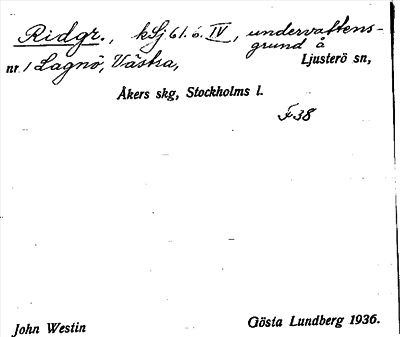 Ridgr., kSj. 61. ö. IV, undervattens-
grund å
nr. 1 Lagnö, Västra, Ljusterö sn,
Åkers skg, Stockholms l.
F38
John Westin Gösta Lundberg 1936.